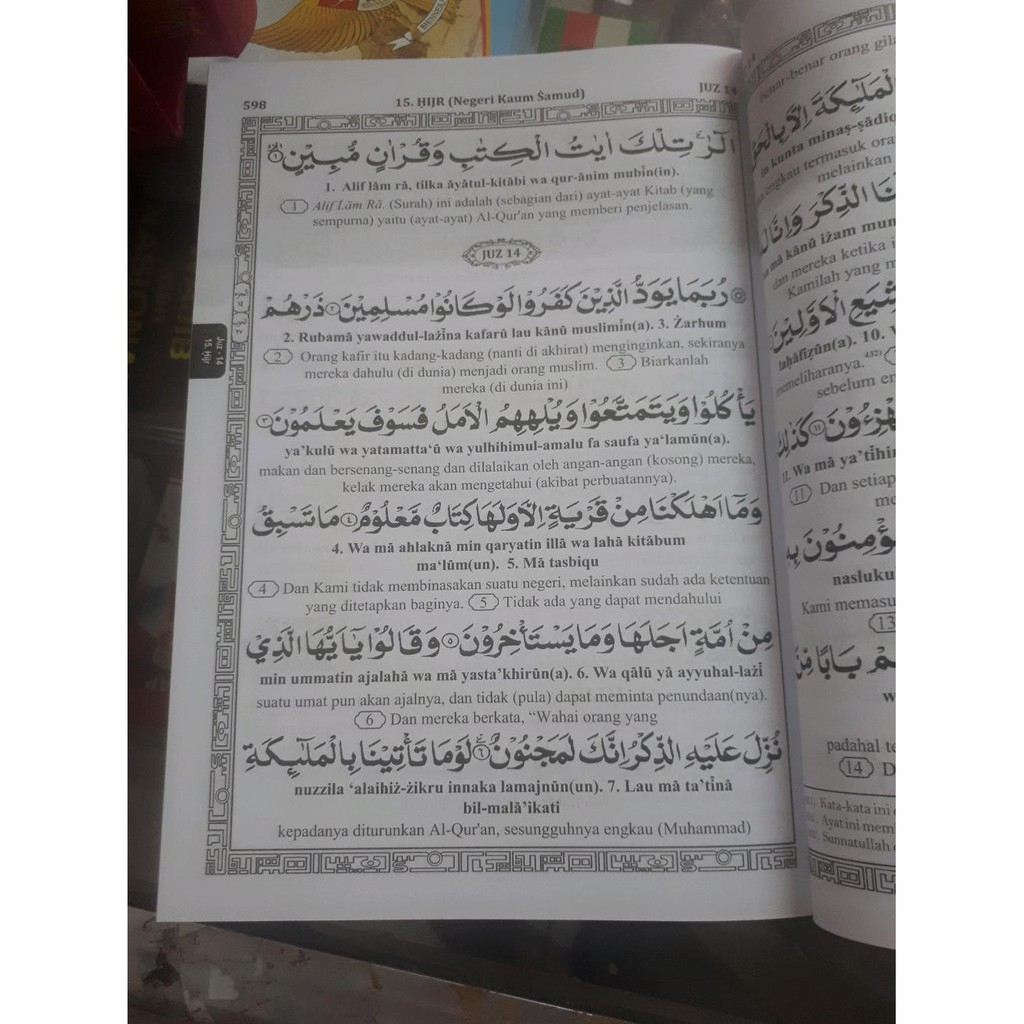 598
15. ḤIJR (Negeri Kaum Ṡamud)
JUZ 14
الۤرٰ ۗ تِلْكَ اٰيٰتُ الْكِتٰبِ وَقُرْاٰنٍ مُّبِيْنٍ ١
1. Alif lām rā, tilka āyātul-kitābi wa qur-ānim mubīn(in).
1 Alif Lām Rā. (Surah) ini adalah (sebagian dari) ayat-ayat Kitab (yang
sempurna) yaitu (ayat-ayat) Al-Qur'an yang memberi penjelasan.
JUZ 14
۞ رُبَمَا يَوَدُّ الَّذِيْنَ كَفَرُوْا لَوْ كَانُوْا مُسْلِمِيْنَ ٢ ذَرْهُمْ
2. Rubamā yawaddul-lażīna kafarū lau kānū muslimīn(a). 3. Żarhum
2 Orang kafir itu kadang-kadang (nanti di akhirat) menginginkan, sekiranya
mereka dahulu (di dunia) menjadi orang muslim. 3 Biarkanlah
mereka (di dunia ini)
يَأْكُلُوْا وَيَتَمَتَّعُوْا وَيُلْهِهِمُ الْاَمَلُ فَسَوْفَ يَعْلَمُوْنَ ٣
ya'kulū wa yatamatta‘ū wa yulhihimul-amalu fa saufa ya‘lamūn(a).
makan dan bersenang-senang dan dilalaikan oleh angan-angan (kosong) mereka,
kelak mereka akan mengetahui (akibat perbuatannya).
وَمَآ اَهْلَكْنَا مِنْ قَرْيَةٍ اِلَّا وَلَهَا كِتَابٌ مَّعْلُوْمٌ ٤ مَا تَسْبِقُ
4. Wa mā ahlaknā min qaryatin illā wa lahā kitābum
ma‘lūm(un). 5. Mā tasbiqu
4 Dan Kami tidak membinasakan suatu negeri, melainkan sudah ada ketentuan
yang ditetapkan baginya. 5 Tidak ada yang dapat mendahului
مِنْ اُمَّةٍ اَجَلَهَا وَمَا يَسْتَأْخِرُوْنَ ٥ وَقَالُوْا يٰٓاَيُّهَا الَّذِيْ
min ummatin ajalahā wa mā yasta'khirūn(a). 6. Wa qālū yā ayyuhal-lażī
suatu umat pun akan ajalnya, dan tidak (pula) dapat meminta penundaan(nya).
6 Dan mereka berkata, “Wahai orang yang
نُزِّلَ عَلَيْهِ الذِّكْرُ اِنَّكَ لَمَجْنُوْنٌ ۗ ٦ لَوْمَا تَأْتِيْنَا بِالْمَلٰۤىِٕكَةِ
nuzzila ‘alaihiż-żikru innaka lamajnūn(un). 7. Lau mā ta'tīnā
bil-malā'ikati
kepadanya diturunkan Al-Qur'an, sesungguhnya engkau (Muhammad)
Juz - 14
15. Hijr
benar-benar orang
in kunta minaṣ-ṣādio
engkau termasuk ora
melainkan
mā kānū iżam mun
dan mereka ketika i
Kamilah yang m
laḥāfiẓūn(a). 10.
memeliharanya. 432)
sebelum
11. Wa mā ya'tīhi
11 Dan setiap
me
nasluku
Kami memasu
13
padahal te
14 D
Kata-kata ini
Ayat ini mem
Sunnatullah